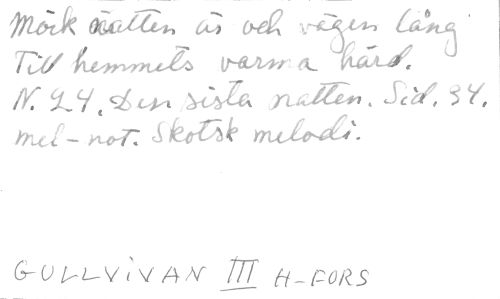 Mörk natten är och vägen lång
Till hemmets varma härd.
N. 24. Den sista natten. Sid. 34.
mel-not. Skotsk melodi.
GULLViVAN III H-FORS